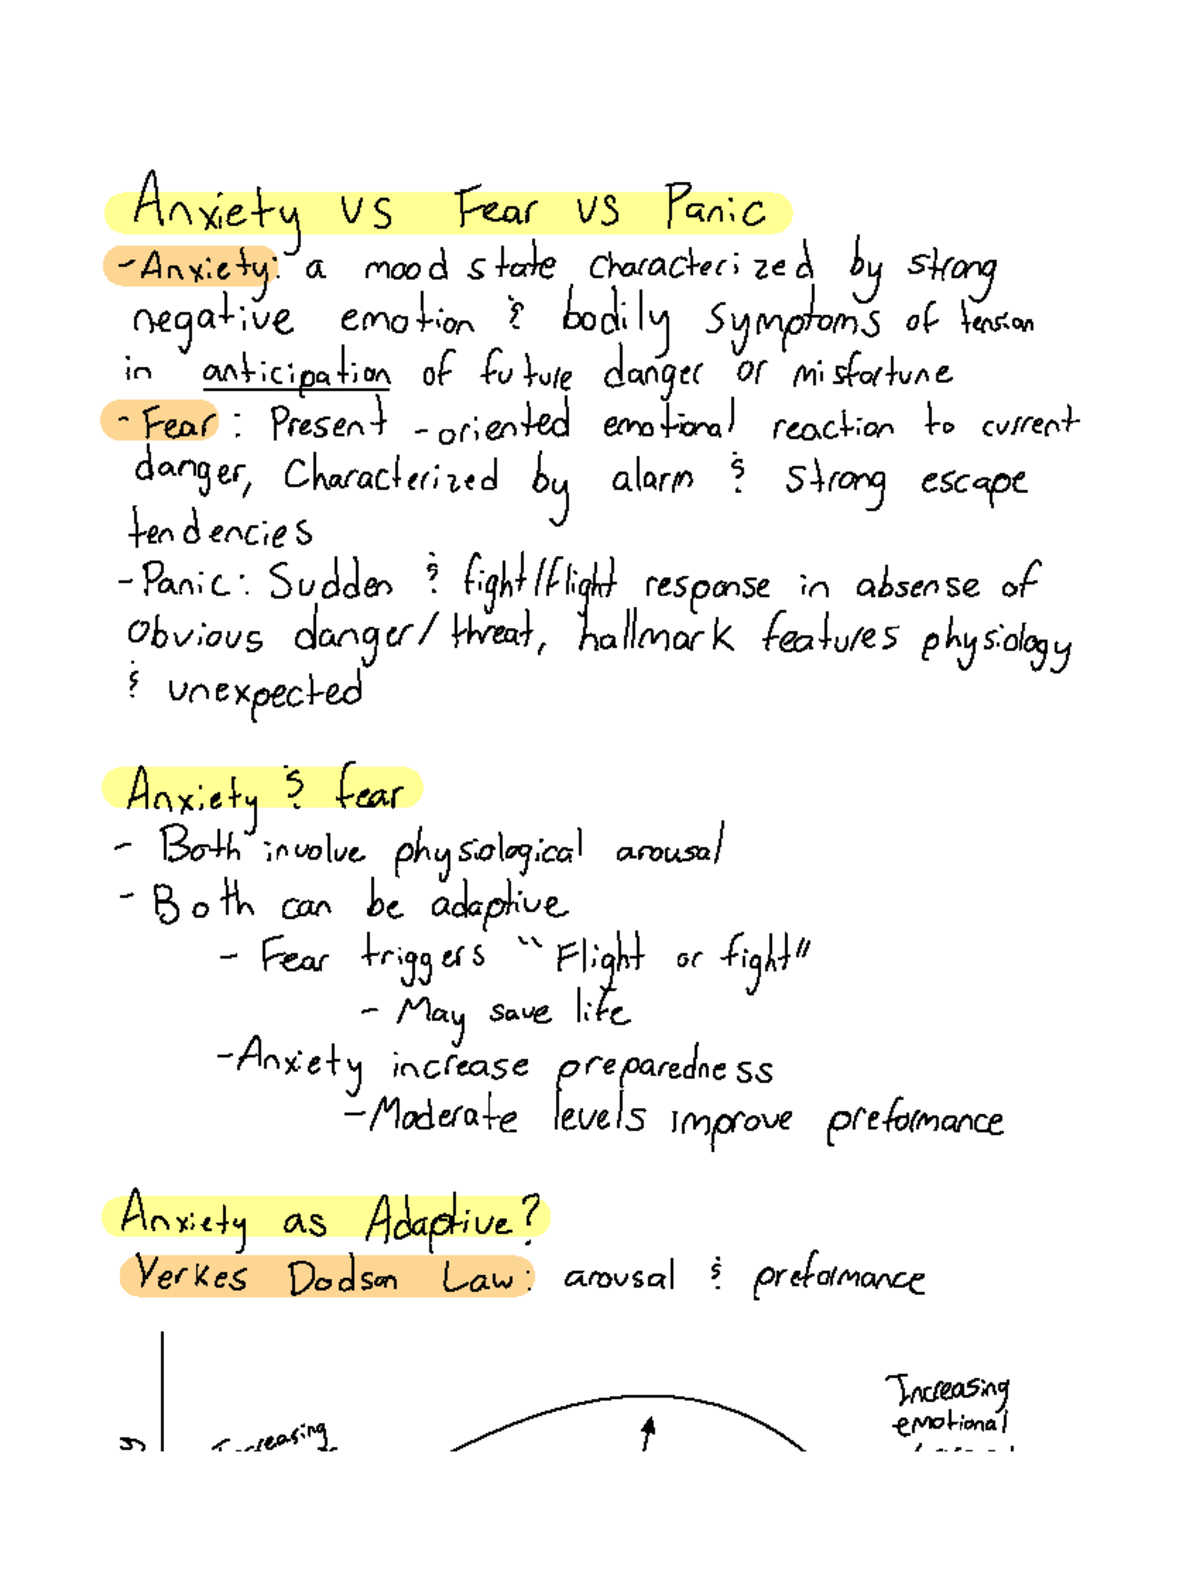 Anxiety vs Fear vs Panic
- Anxiety: a mood state characterized by strong
negative emotion & bodily symptoms of tension
in anticipation of future danger or misfortune
- Fear: Present-oriented emotional reaction to current
danger, Characterized by alarm & strong escape
tendencies
- Panic: Sudden & fight/flight response in absense of
obvious danger/threat, hallmark features physiology
& unexpected
Anxiety & fear
- Both involve physiological arousal
- Both can be adaptive
- Fear triggers "Flight or fight"
- May save life
- Anxiety increase preparedness
- Moderate levels improve preformance
Anxiety as Adaptive?
Yerkes Dodson Law: arousal & preformance
Increasing
emotional
Increasing